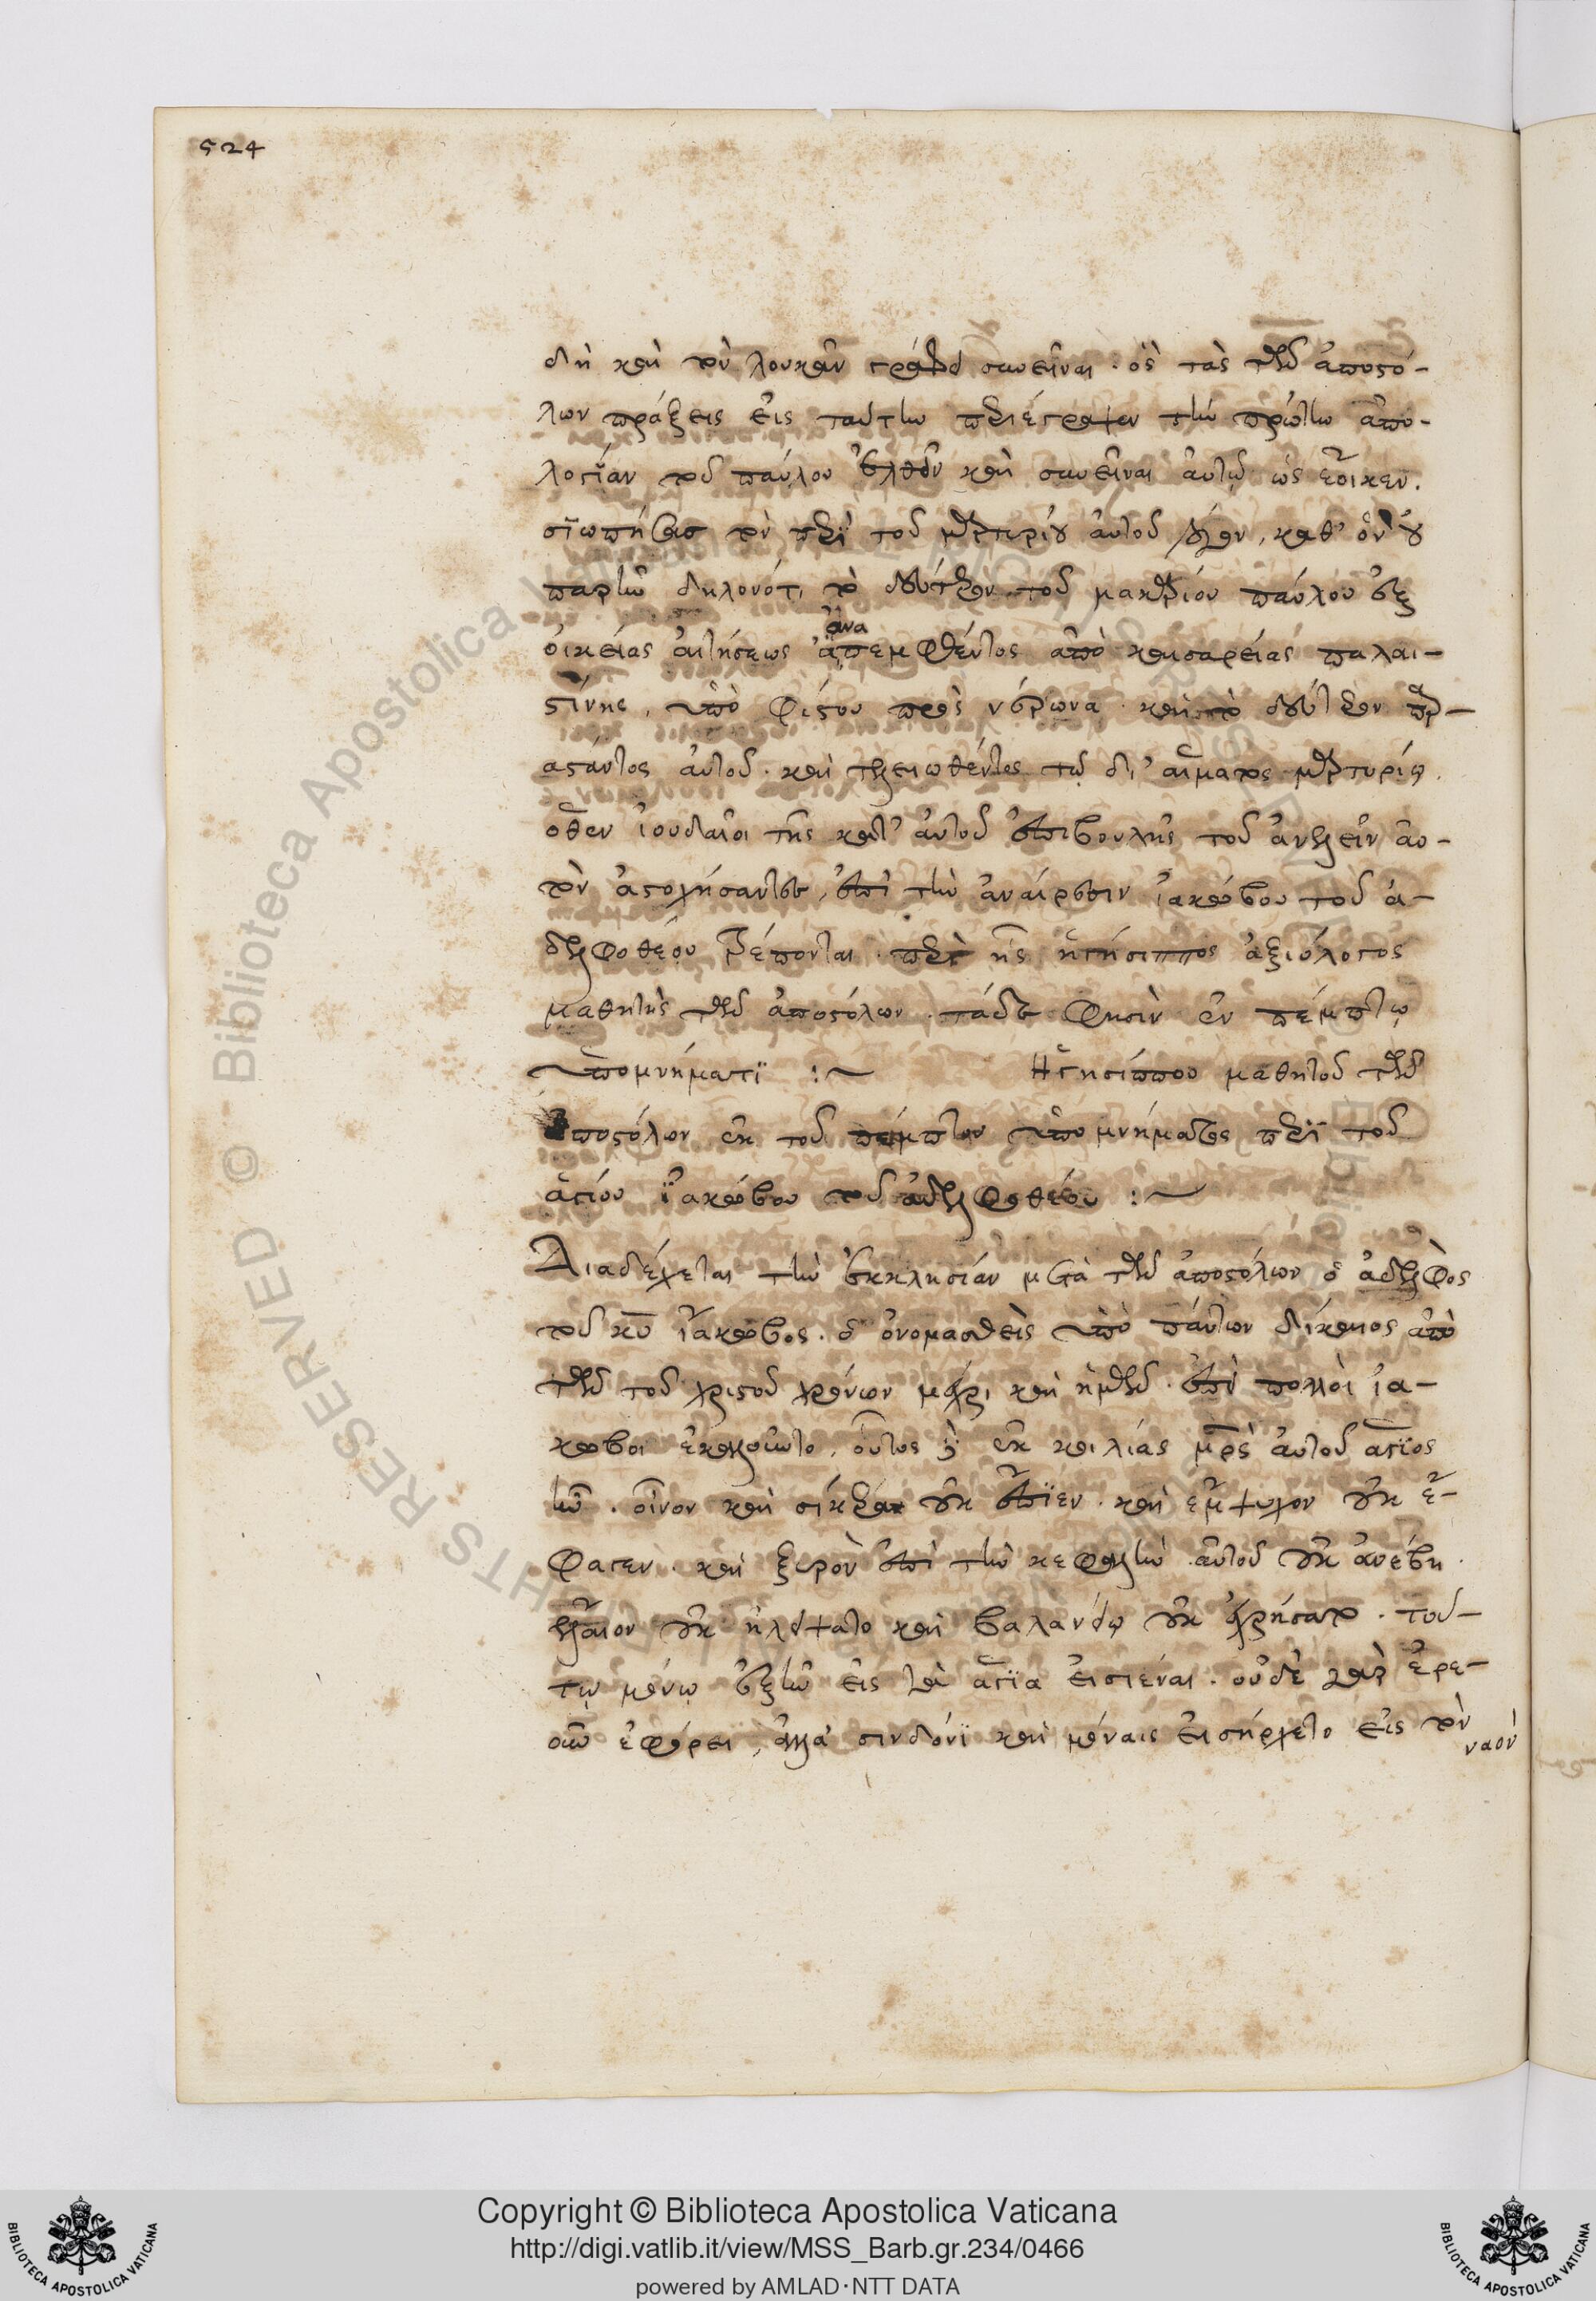 524
δὴ καὶ τὸν λουκᾶν γράφει συνεῖναι · ὃς τὰς τῶν ἀποστό-
λων πράξεις εἰς ταύτην περιέγραψεν τὴν πρώτην ἀπο-
λογίαν τοῦ παύλου ἐλθὼν καὶ συνεῖναι αὐτῷ ὡς ἔοικεν.
σιωπήσας τὸν περὶ τοῦ μαρτυρίου αὐτοῦ λόγον, καθ' ὃν οὐ
παρῆν δηλονότι τὸ δεύτερον τοῦ μακαρίου παύλου ἐξ
ἀνα
οἰκείας αἰτήσεως ἀπεμφθέντος ἀπὸ καισαρείας παλαι-
στίνης, ὑπὸ φίστου πρὸς νέρωνα · καὶ τὸ δεύτερον παρ-
αστάντος αὐτοῦ · καὶ τελειωθέντος τῷ δι' αἵματος μαρτυρίῳ.
ὅθεν ἰουδαῖοι τῆς κατ' αὐτοῦ ἐπιβουλῆς τοῦ ἀνελεῖν αὐ-
τὸν ἀστοχήσαντες, ἐπὶ τὴν ἀναίρεσιν ἰακώβου τοῦ ἀ-
δελφοθέου τρέπονται · περὶ ἧς ἡγήσιππος ἀξιόλογος
μαθητὴς τῶν ἀποστόλων · τάδε φησὶν ἐν πέμπτῳ
ὑπομνήματι :~ Ηγησίππου μαθητοῦ τῶν
ἀποστόλων ἐκ τοῦ πέμπτου ὑπομνήματος περὶ τοῦ
ἁγίου ἰακώβου τοῦ ἀδελφοθέου :~
Διαδέχεται τὴν ἐκκλησίαν μετὰ τῶν ἀποστόλων ὁ ἀδελφὸς
τοῦ κυ ἰάκωβος · ὁ ὀνομασθεὶς ὑπὸ πάντων δίκαιος ἀπὸ
τῶν τοῦ χριστοῦ χρόνων μέχρι καὶ ἡμῶν · ἐπεὶ πολλοὶ ἰά-
κωβοι ἐκαλοῦντο, οὗτος δὲ ἐκ κοιλίας μρς αὐτοῦ ἅγιος
ἦν · οἶνον καὶ σίκερα οὐκ ἔπιεν · καὶ ἔμψυχον οὐκ ἔ-
φαγεν · καὶ ξυρὸν ἐπὶ τὴν κεφαλὴν αὐτοῦ οὐκ ἀνέβη ·
ἔλαιον οὐκ ἠλείψατο καὶ βαλανείῳ οὐκ ἐχρήσατο · τού-
τῳ μόνῳ ἐξῆν εἰς τὰ ἅγια εἰσιέναι · οὐδὲ γὰρ ἐρε-
οῦν ἐφόρει, ἀλλὰ σινδόνι καὶ μόναις εἰσήρχετο εἰς τὸν
ναὸν
Copyright © Biblioteca Apostolica Vaticana
http://digi.vatlib.it/view/MSS_Barb.gr.234/0466
powered by AMLAD·NTT DATA